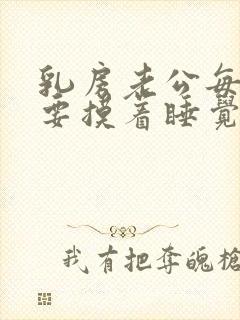 乳房老公每
要摸着睡覺
我有把奪魄槍